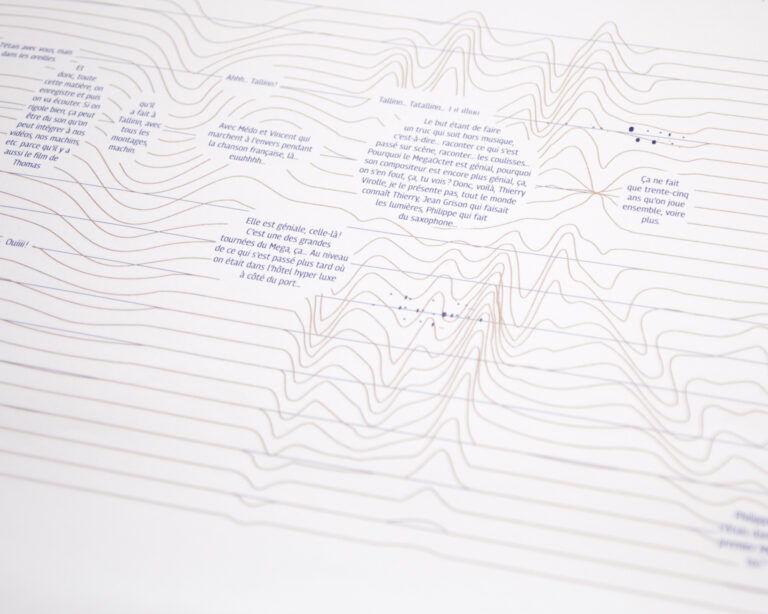 J'étais avec vous, mais
dans les oreilles
Et
donc, toute
cette matière, on
enregistre et puis
on va écouter. Si on
rigole bien, ça peut
être du son qu'on
peut intégrer à nos
vidéos, nos machins,
etc. parce qu'il y a
aussi le film de
Thomas
qu'il
a fait à
Tallinn, avec
tous les
montages,
machin.
Ahhh... Tallinn!
Avec Médo et Vincent qui
marchent à l'envers pendant
la chanson française, là...
euuhhhh...
Tallinn... Tatallinn...
Le but étant de faire
un truc qui soit hors musique,
c'est-à-dire... raconter ce qui s'est
passé sur scène, raconter... les coulisses...
Pourquoi le MegaOctet est génial, pourquoi
son compositeur est encore plus génial, ça,
on s'en fout, ça, tu vois ? Donc, voilà, Thierry
Virolle, je le présente pas, tout le monde
connaît Thierry, Jean Grison qui faisait
les lumières, Philippe qui fait
du saxophone...
Ça ne fait
que trente-cinq
ans qu'on joue
ensemble, voire
plus.
Elle est géniale, celle-là!
C'est une des grandes
tournées du Mega, ça... Au niveau
de ce qui s'est passé plus tard où
on était dans l'hôtel hyper luxe
à côté du port...
Ouiiii!
Philippe
c'étais dans
premier